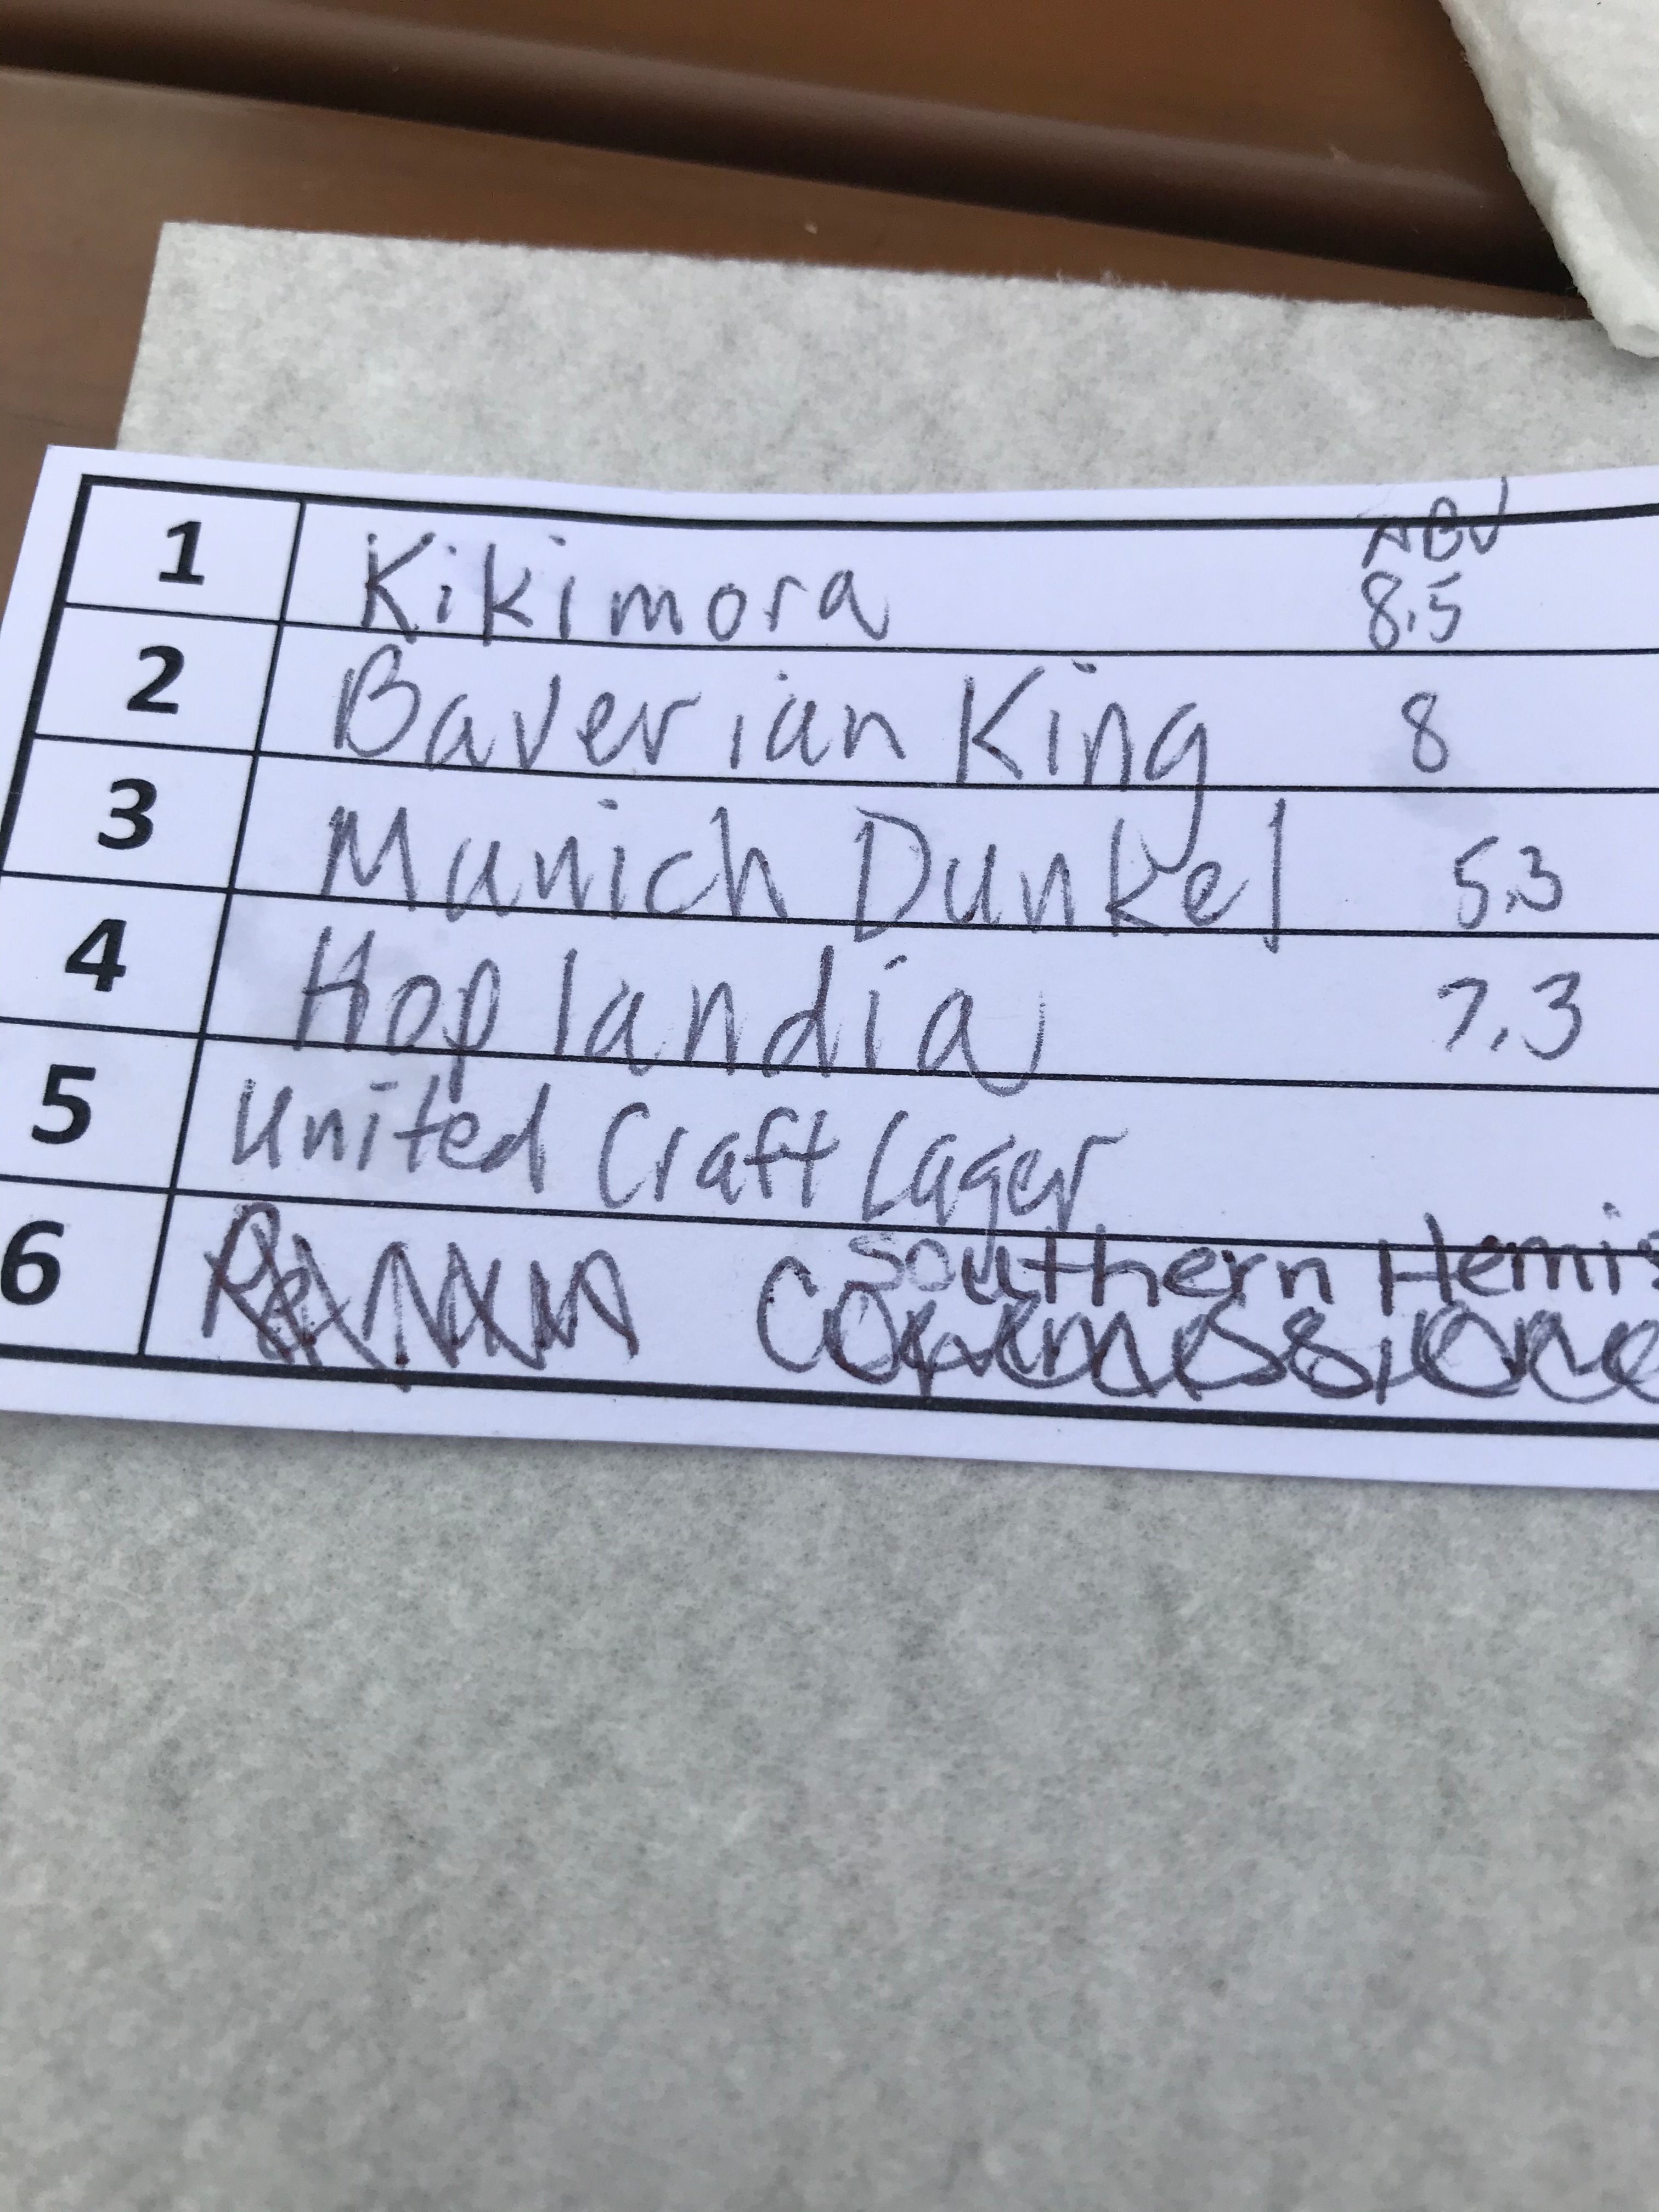 ABV
1 Kikimora 8.5
2 Baverian King 8
3 Munich Dunkel 5.3
4 Hoplandia 7.3
5 United Craft Lager
6 Southern Hemis